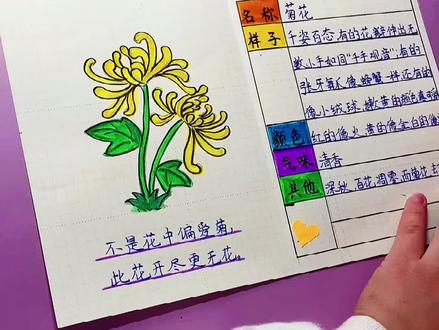 名称 菊花
样子 千姿百态，有的花瓣伸出无
数小手如同“千手观音”；有的
张牙舞爪像螃蟹一样；还有的
像小绒球，嫩黄的颜色
颜色 红的像火，黄的像金，白的像
气味 清香
其他 深秋，百花凋零，而菊花
不是花中偏爱菊，
此花开尽更无花。